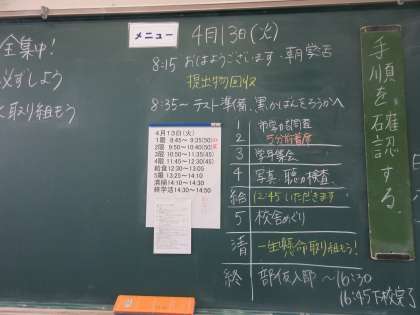 全集中!
必ずしよう
取り組もう
メニュー
4月13日(火)
8:15 おはようございます・朝学活
提出物回収
8:35〜 テスト準備、黒かばんをろうかへ
1
2 5分前着席
3 学年集会
4 写真、聴力検査
給 12:45 いただきます
5 校舎めぐり
清 一生懸命取り組もう!
終 部仮入部 〜16:30
16:45 下校完了
4月13日(火)
1限 8:45〜9:35(50)
2限 9:50〜10:40(50)
3限 10:50〜11:35(45)
4限 11:45〜12:30(45)
給食 12:30〜13:05
5限 13:25〜14:10
清掃 14:10〜14:30
終学活 14:30〜14:50
手順を確認する。